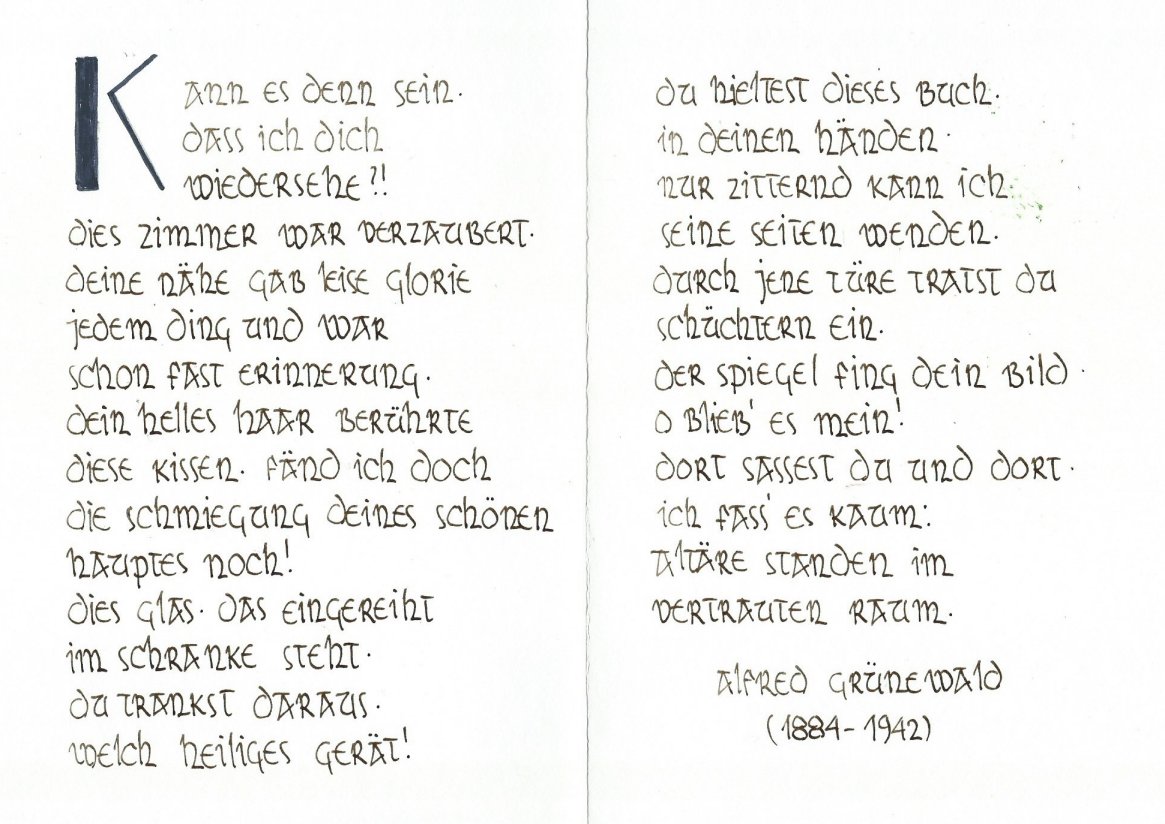 Kann es denn sein.
dass ich dich
wiedersehe?!
dies zimmer war verzaubert.
deine nähe gab leise glorie
jedem ding und war
schon fast erinnerung.
dein helles haar berührte
diese kissen. fänd ich doch
die schmiegung deines schönen
hauptes noch!
dies glas. das eingereiht
im schranke steht.
du trankst daraus.
welch heiliges gerät!
du hieltest dieses buch.
in deinen händen.
nur zitternd kann ich.
seine seiten wenden.
durch jene türe tratst du
schüchtern ein.
der spiegel fing dein bild.
o blieb' es mein!
dort sassest du und dort.
ich fass' es kaum:
altäre standen im
vertrauten raum.
alfred grünewald
(1884-1942)